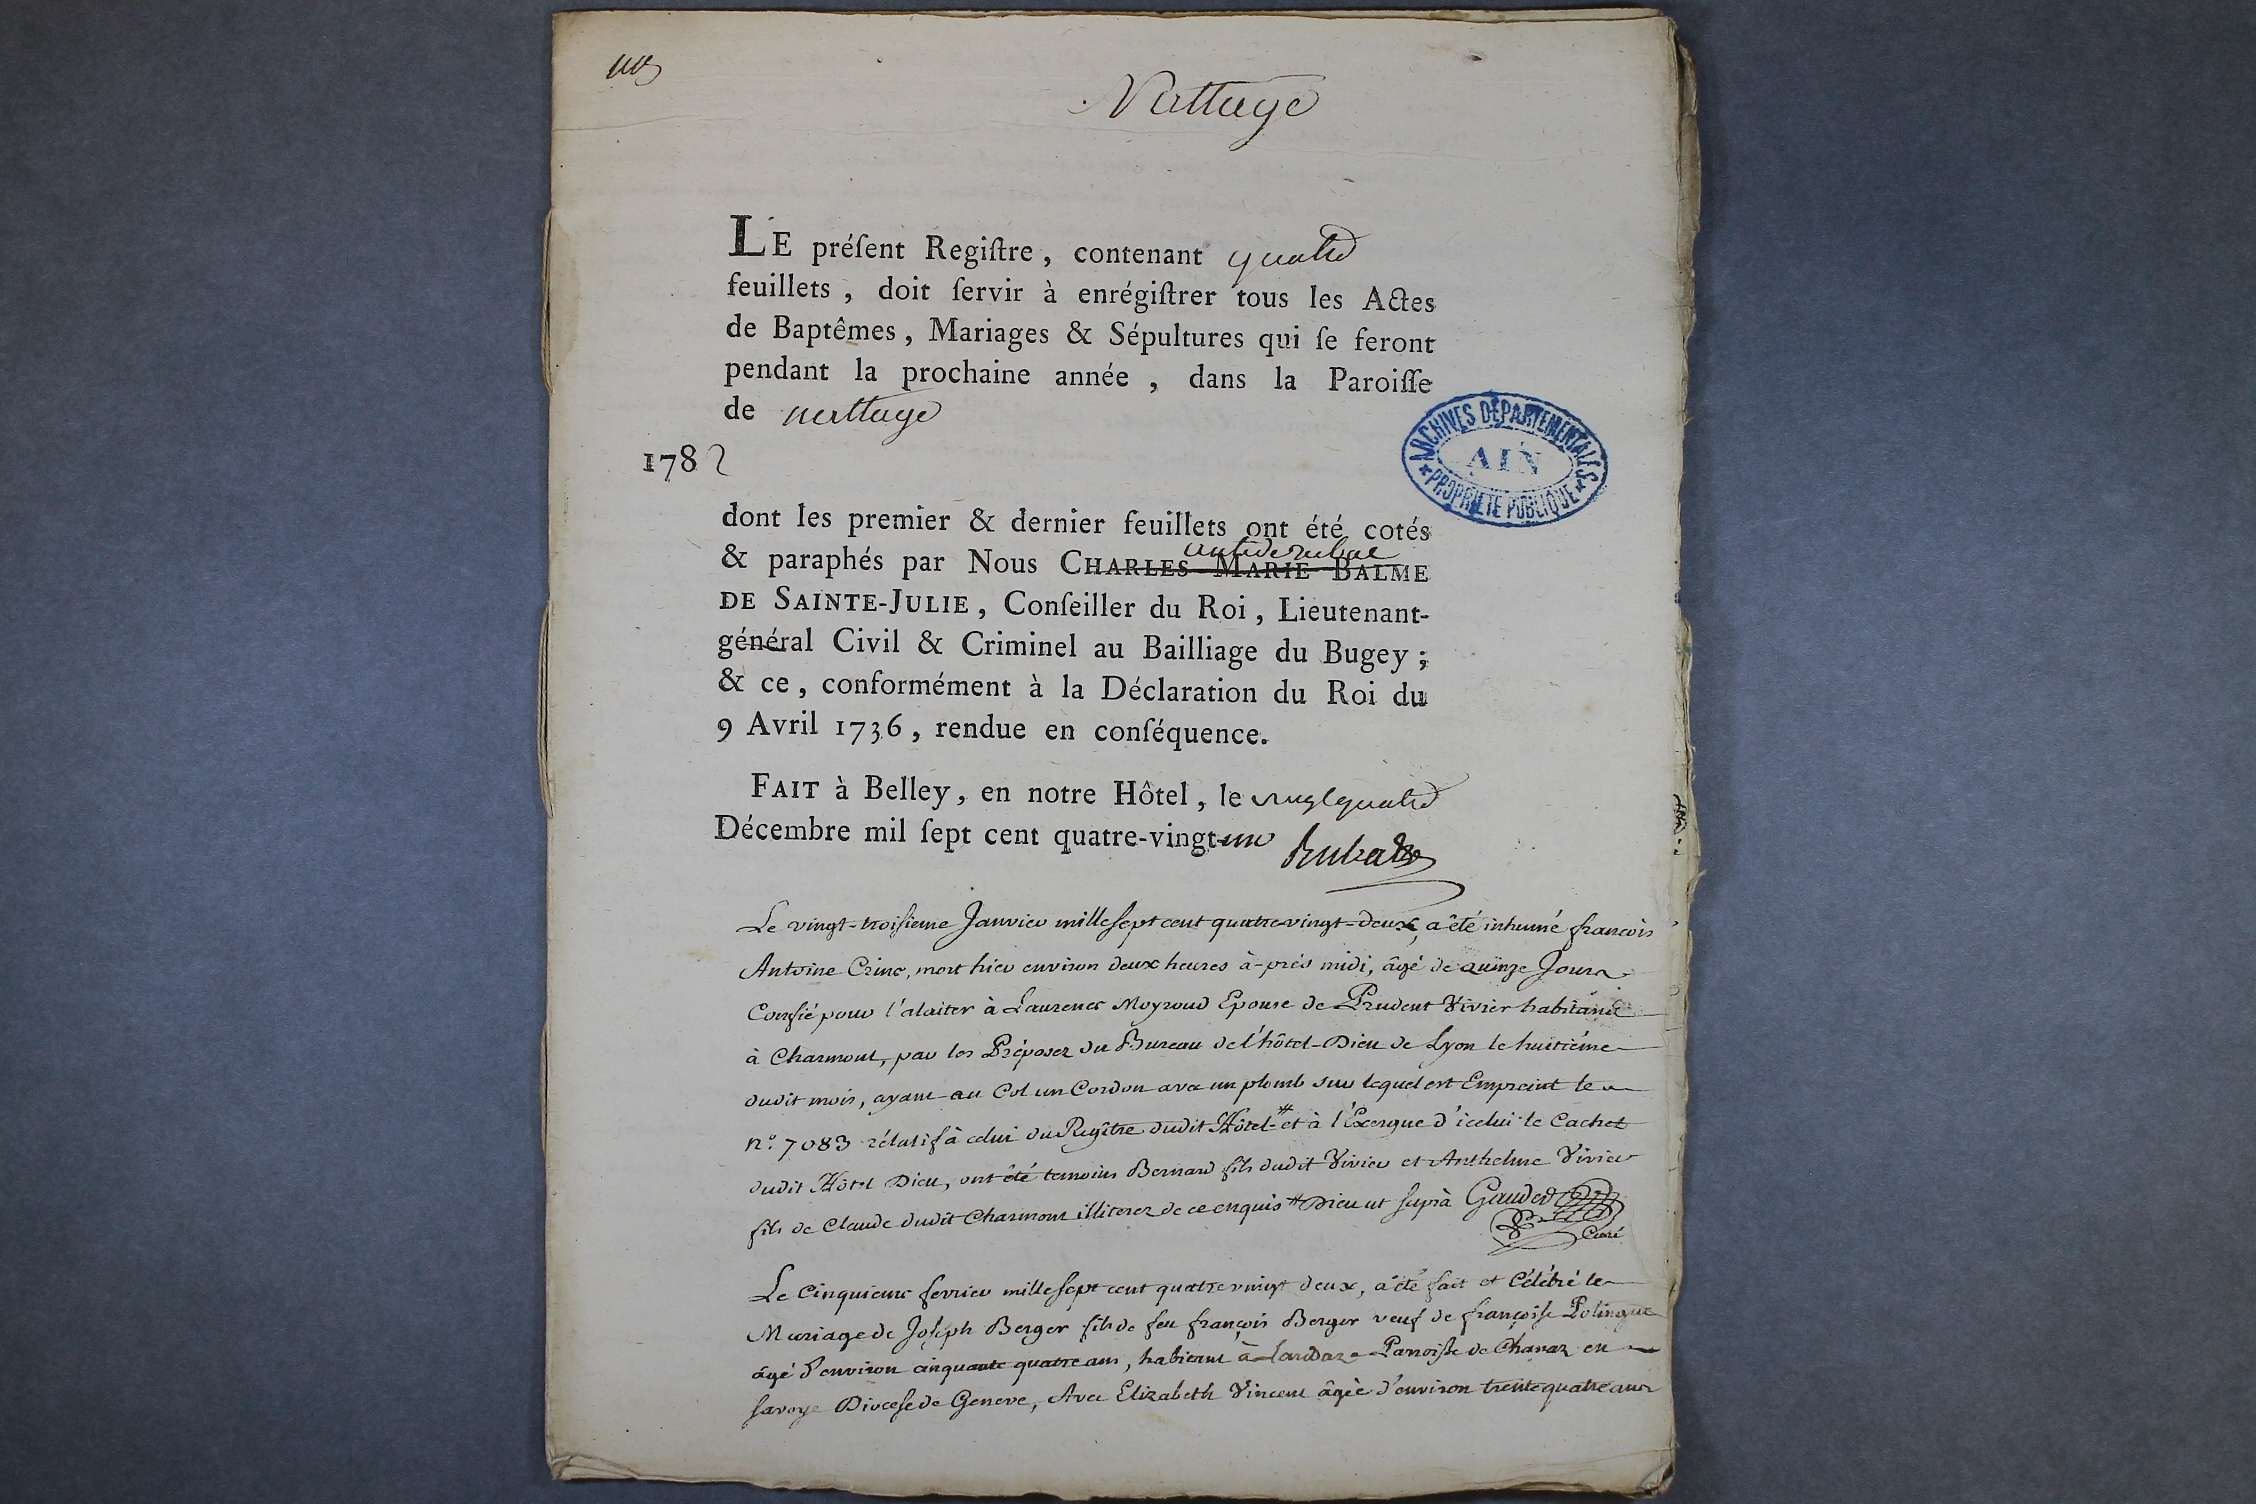 Nattage
LE préſent Regiſtre, contenant quatre
feuillets, doit ſervir à enrégiſtrer tous les Actes
de Baptêmes, Mariages & Sépultures qui ſe feront
pendant la prochaine année, dans la Paroiſſe
de nattage
ARCHIVES DÉPARTEMENTALES
AIN
PROPRIÉTÉ PUBLIQUE
1782
dont les premier & dernier feuillets ont été cotés
& paraphés par Nous CHARLES-MARIE BALME
DE SAINTE-JULIE, Conſeiller du Roi, Lieutenant-
général Civil & Criminel au Bailliage du Bugey;
& ce, conformément à la Déclaration du Roi du
9 Avril 1736, rendue en conſéquence.
FAIT à Belley, en notre Hôtel, le vingt quatre
Décembre mil ſept cent quatre-vingt-un
Le vingt-troisieme Janvier mille sept cent quatre-vingt-deux, a été inhumé françois
Antoine Crine, mort hier environ deux heures à-près midi, âgé de quinze Jours
Confié pour l'alaiter à Laurence Moyroud Epouse de Prudent Vivier habitant
à Charmont, par les Préposez du Bureau de l'hôtel-Dieu de Lyon le huitiéme
dudit mois, ayant au Col un Cordon avec un plomb sur lequel est Empreint le
n.º 7083 rélatif à celui du Regître dudit Hôtel-# et à l'Exergue d'icelui le Cachet
dudit Hôtel Dieu, ont été temoins Bernard fils dudit Vivier et Anthelme Vivier
fils de Claude dudit Charmont illiterez de ce enquis # Dieu ut suprà Gaudet
Curé
Le Cinquieme fevrier mille sept cent quatre vingt deux, a été fait et Célébré le
Mariage de Joseph Berger fils de feu françois Berger veuf de françoise Polingue
âgé d'environ cinquante quatre ans, habitant à Landaz Parroisse de Chanaz en
savoye Diocese de Geneve, Avec Elizabeth Vincent âgée d'environ trente quatre ans